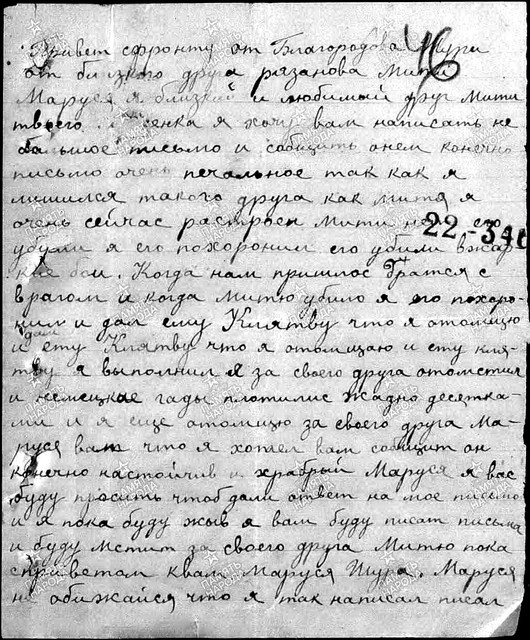 Привет сфронту от Благородова Шури
от близкого друга рязанова Мити
Маруся я близкий и любимый друг Мити
твоего я хочу вам написать не
большое письмо и собщить онем конечно
письмо очень печальное так как я
лишился такого друга как митя я
очень сейчас растроен Мити
22.-3 4
убили я его похоронил его убили вжар
кие бои. Когда нам пришлос братся с
врагом и когда Митю убило я его похоро-
нил и дал ему Клятву что я отомщю
и ету Клятву что я отомщаю и ету кля-
тву я выполнил я за своего друга отомстил
и немецкае гады плотилис жадно десетка-
ми и я еще отомщю за своего друга Ма-
руся вам что я хотел вам собщит он
конечно настойчив и храбрый Маруся я вас
буду просить чтоб дали ответ на мое письмо
и я пока буду жыв я вам буду писат письма
и буду мстит за своего друга Митю пока
сприветом квам Маруся Шура. Маруся
не обижайся что я так написал писал